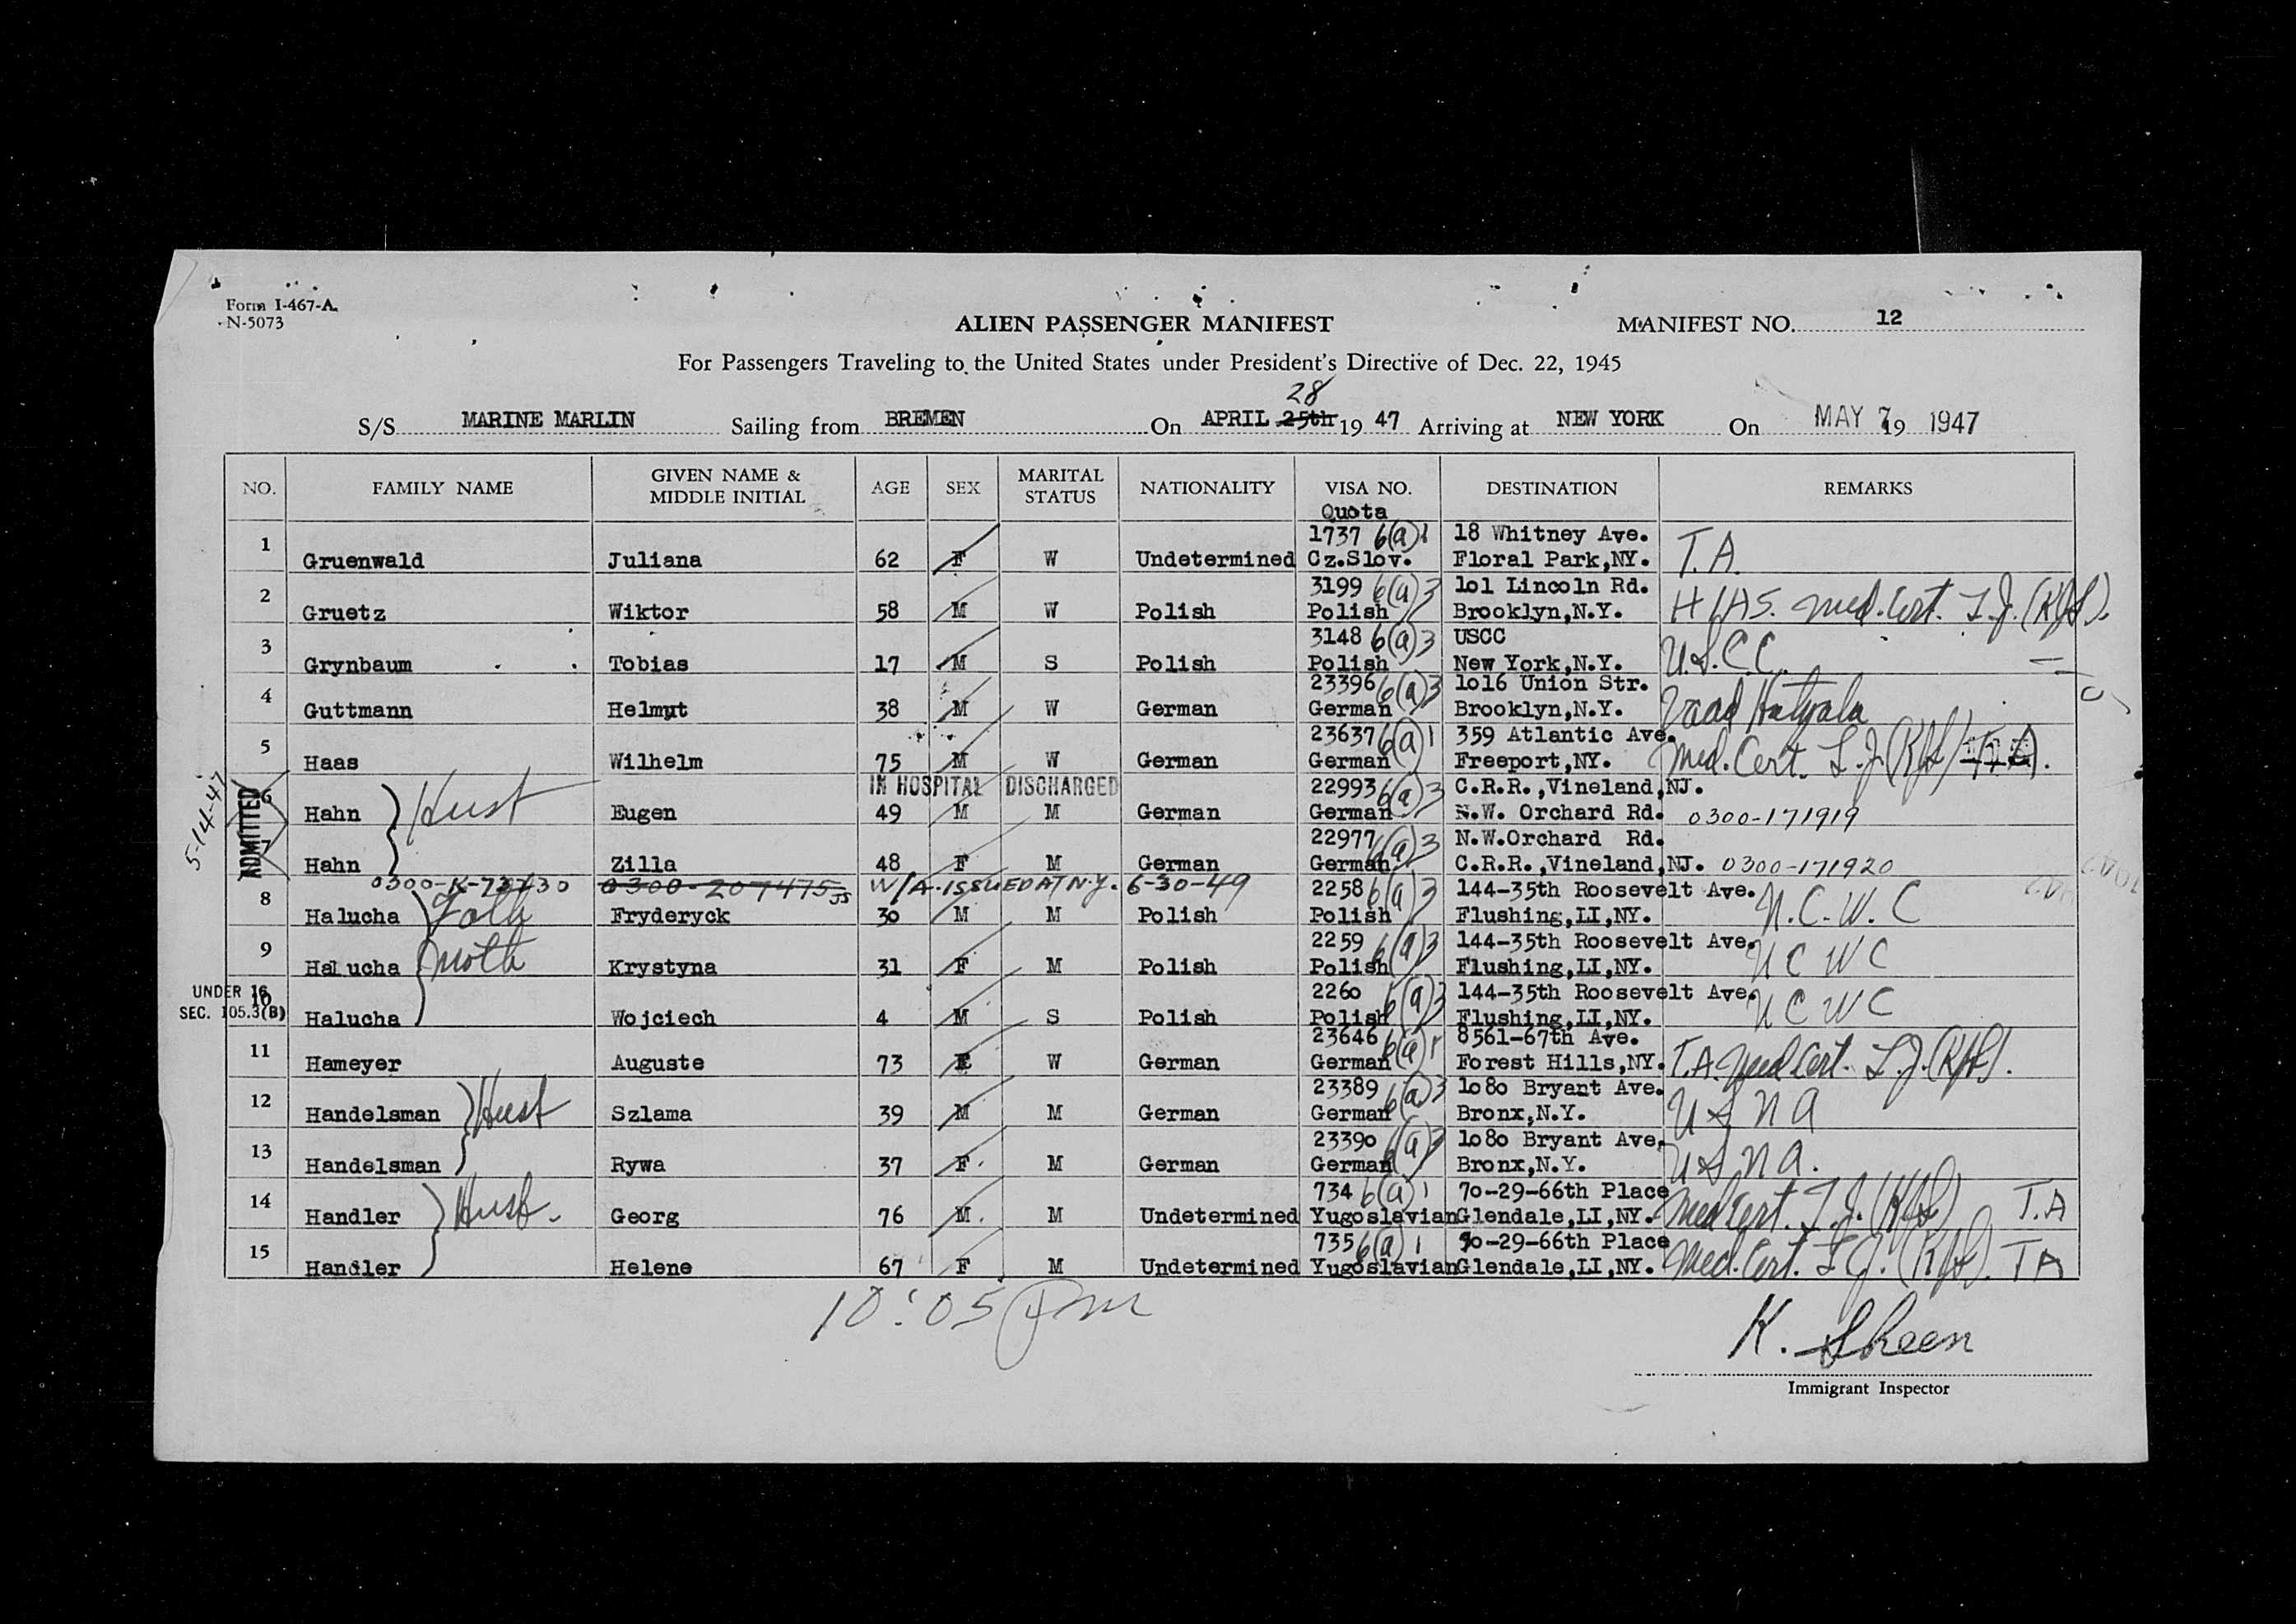 Form I-467-A
N-5073
ALIEN PASSENGER MANIFEST
MANIFEST NO. 12
For Passengers Traveling to the United States under President's Directive of Dec. 22, 1945
28
S/S MARINE MARLIN Sailing from BREMEN On APRIL 25th 19 47 Arriving at NEW YORK On MAY 7 19 1947
NO. FAMILY NAME GIVEN NAME & MIDDLE INITIAL AGE SEX MARITAL STATUS NATIONALITY VISA NO. DESTINATION REMARKS
Quota
1737 6(a)1 18 Whitney Ave.
1 Gruenwald Juliana 62 F W Undetermined Cz.Slov. Floral Park,NY. T.A.
3199 6(a)3 101 Lincoln Rd.
2 Gruetz Wiktor 58 M W Polish Polish Brooklyn,N.Y. HIAS. Med. Cert.
3148 6(a)3 USCC
3 Grynbaum Tobias 17 M S Polish Polish New York,N.Y. U.S.C.C.
23396 6(a)3 1016 Union Str.
4 Guttmann Helmut 38 M W German German Brooklyn,N.Y. Vaad Hatzala
23637 6(a)1 359 Atlantic Ave.
5 Haas Wilhelm 75 M W German German Freeport,NY. Med. Cert. T.A.
IN HOSPITAL DISCHARGED
22993 6(a)3 C.R.R.,Vineland,NJ.
6 Hahn Husb Eugen 49 M M German German N.W. Orchard Rd. 0300-171919
5-14-47 ADMITTED
22977 6(a)3 N.W.Orchard Rd.
7 Hahn Zilla 48 F M German German C.R.R.,Vineland,NJ. 0300-171920
0300-207475 W/A ISSUED AT N.Y. 6-30-49
2258 6(a)3 144-35th Roosevelt Ave.
8 Halucha Fath Fryderyck 30 M M Polish Polish Flushing,LI,NY. N.C.W.C
2259 6(a)3 144-35th Roosevelt Ave.
9 Halucha Moth Krystyna 31 F M Polish Polish Flushing,LI,NY. NCWC
UNDER 16
SEC. 105.3(B)
2260 6(a)3 144-35th Roosevelt Ave.
10 Halucha Wojciech 4 M S Polish Polish Flushing,LI,NY. NCWC
23646 6(a)1 8561-67th Ave.
11 Hameyer Auguste 73 F W German German Forest Hills,NY. T.A. Med Cert.
23389 6(a)3 1080 Bryant Ave.
12 Handelsman Husb Szlama 39 M M German German Bronx,N.Y. USNA
23390 6(a)3 1080 Bryant Ave.
13 Handelsman Rywa 37 F M German German Bronx,N.Y. USNA.
734 6(a)1 70-29-66th Place
14 Handler Husb. Georg 76 M M Undetermined Yugoslavian Glendale,LI,NY. Med Cert. T.A
735 6(a)1 70-29-66th Place
15 Handler Helene 67 F M Undetermined Yugoslavian Glendale,LI,NY. Med. Cert. TA
10:05 Pm
K. Sheen
Immigrant Inspector